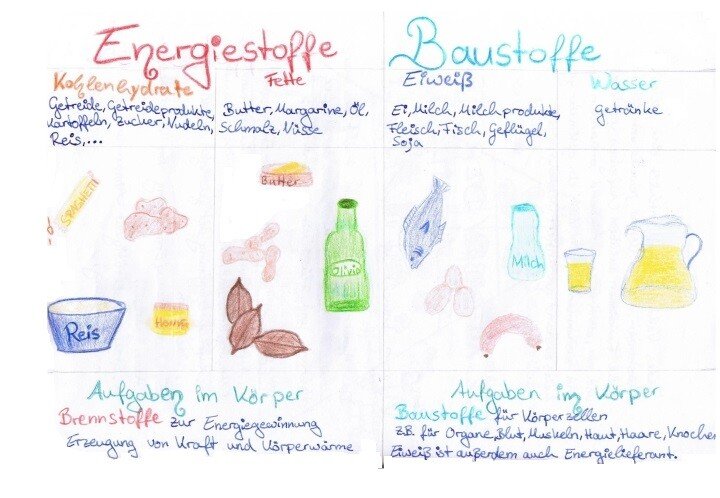 Energiestoffe
Kohlenhydrate
Getreide, Getreideprodukte,
Kartoffeln, Zucker, Nudeln,
Reis,...
Fette
Butter, Margarine, Öl,
Schmalz, Nüsse
SPAGHETTI
Butter
Olivin
Reis
Honig
Aufgaben im Körper
Brennstoffe zur Energiegewinnung
Erzeugung von Kraft und Körperwärme
Baustoffe
Eiweiß
Ei, Milch, Milchprodukte,
Fleisch, Fisch, Geflügel,
Soja
Wasser
Getränke
Milch
Aufgaben im Körper
Baustoffe für Körperzellen
z.B. für Organe, Blut, Muskeln, Haut, Haare, Knochen
Eiweiß ist außerdem auch Energielieferant.